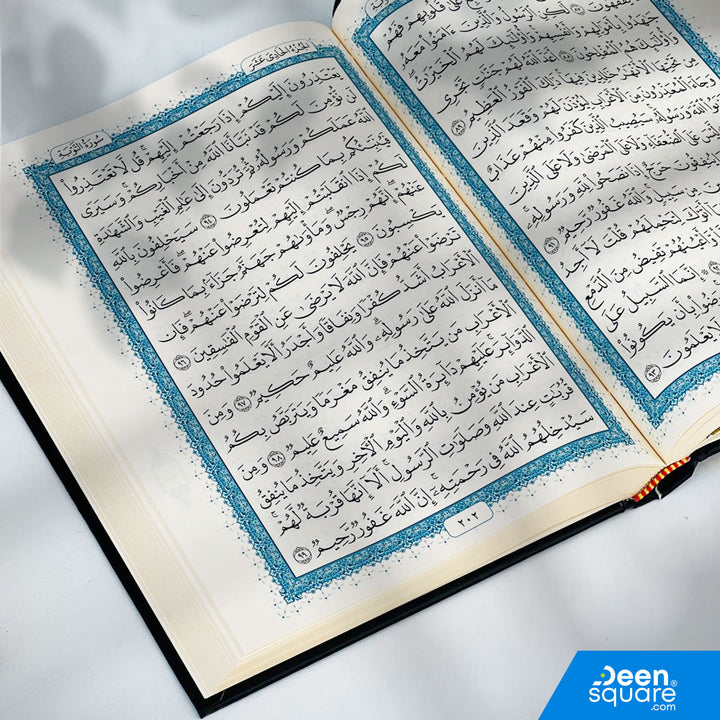 عَلَىٰ قُلُوبِهِمْ فَهُمْ
يَفْقَهُونَ ٨٧ لَٰكِنِ ٱلرَّسُولُ وَٱلَّذِينَ ءَامَنُوا۟ مَعَهُۥ
جَٰهَدُوا۟ بِأَمْوَٰلِهِمْ وَأَنفُسِهِمْ وَأُو۟لَٰٓئِكَ لَهُمُ ٱلْخَيْرَٰتُ
وَأُو۟لَٰٓئِكَ هُمُ ٱلْمُفْلِحُونَ ٨٨ أَعَدَّ ٱللَّهُ لَهُمْ جَنَّٰتٍ تَجْرِى
مِن تَحْتِهَا ٱلْأَنْهَٰرُ خَٰلِدِينَ فِيهَا ذَٰلِكَ ٱلْفَوْزُ ٱلْعَظِيمُ ٨٩
وَجَآءَ ٱلْمُعَذِّرُونَ مِنَ ٱلْأَعْرَابِ لِيُؤْذَنَ لَهُمْ وَقَعَدَ ٱلَّذِينَ
سَيُصِيبُ ٱلَّذِينَ كَفَرُوا۟ مِنْهُمْ عَذَابٌ أَلِيمٌ
عَلَى ٱلضُّعَفَآءِ وَلَا عَلَى ٱلْمَرْضَىٰ وَلَا عَلَى ٱلَّذِينَ
يُنفِقُونَ حَرَجٌ إِذَا نَصَحُوا۟ لِلَّهِ وَرَسُولِهِۦ
مِن سَبِيلٍ وَٱللَّهُ غَفُورٌ رَّحِيمٌ ٩١
أَتَوْكَ لِتَحْمِلَهُمْ قُلْتَ لَآ أَجِدُ
وَّأَعْيُنُهُمْ تَفِيضُ مِنَ ٱلدَّمْعِ
إِنَّمَا ٱلسَّبِيلُ عَلَى
رَضُوا۟ بِأَن يَكُونُوا۟
لَا يَعْلَمُونَ ٩٣
الجُزْءُ الحَادِي عَشَرَ
سُورَةُ التَّوْبَةِ
يَعْتَذِرُونَ إِلَيْكُمْ إِذَا رَجَعْتُمْ إِلَيْهِمْ قُل لَّا تَعْتَذِرُوا۟
لَن نُّؤْمِنَ لَكُمْ قَدْ نَبَّأَنَا ٱللَّهُ مِنْ أَخْبَارِكُمْ وَسَيَرَى
ٱللَّهُ عَمَلَكُمْ وَرَسُولُهُۥ ثُمَّ تُرَدُّونَ إِلَىٰ عَٰلِمِ ٱلْغَيْبِ وَٱلشَّهَٰدَةِ
فَيُنَبِّئُكُم بِمَا كُنتُمْ تَعْمَلُونَ ٩٤ سَيَحْلِفُونَ بِٱللَّهِ
لَكُمْ إِذَا ٱنقَلَبْتُمْ إِلَيْهِمْ لِتُعْرِضُوا۟ عَنْهُمْ فَأَعْرِضُوا۟
عَنْهُمْ إِنَّهُمْ رِجْسٌ وَمَأْوَىٰهُمْ جَهَنَّمُ جَزَآءًۢ بِمَا كَانُوا۟
يَكْسِبُونَ ٩٥ يَحْلِفُونَ لَكُمْ لِتَرْضَوْا۟ عَنْهُمْ فَإِن
تَرْضَوْا۟ عَنْهُمْ فَإِنَّ ٱللَّهَ لَا يَرْضَىٰ عَنِ ٱلْقَوْمِ ٱلْفَٰسِقِينَ ٩٦
ٱلْأَعْرَابُ أَشَدُّ كُفْرًا وَنِفَاقًا وَأَجْدَرُ أَلَّا يَعْلَمُوا۟ حُدُودَ
مَآ أَنزَلَ ٱللَّهُ عَلَىٰ رَسُولِهِۦ وَٱللَّهُ عَلِيمٌ حَكِيمٌ ٩٧ وَمِنَ
ٱلْأَعْرَابِ مَن يَتَّخِذُ مَا يُنفِقُ مَغْرَمًا وَيَتَرَبَّصُ بِكُمُ
ٱلدَّوَآئِرَ عَلَيْهِمْ دَآئِرَةُ ٱلسَّوْءِ وَٱللَّهُ سَمِيعٌ عَلِيمٌ ٩٨ وَمِنَ
ٱلْأَعْرَابِ مَن يُؤْمِنُ بِٱللَّهِ وَٱلْيَوْمِ ٱلْءَاخِرِ وَيَتَّخِذُ مَا يُنفِقُ
قُرُبَٰتٍ عِندَ ٱللَّهِ وَصَلَوَٰتِ ٱلرَّسُولِ أَلَآ إِنَّهَا قُرْبَةٌ لَّهُمْ
سَيُدْخِلُهُمُ ٱللَّهُ فِى رَحْمَتِهِۦٓ إِنَّ ٱللَّهَ غَفُورٌ رَّحِيمٌ ٩٩
٢٠٢
Deen
square®
.com